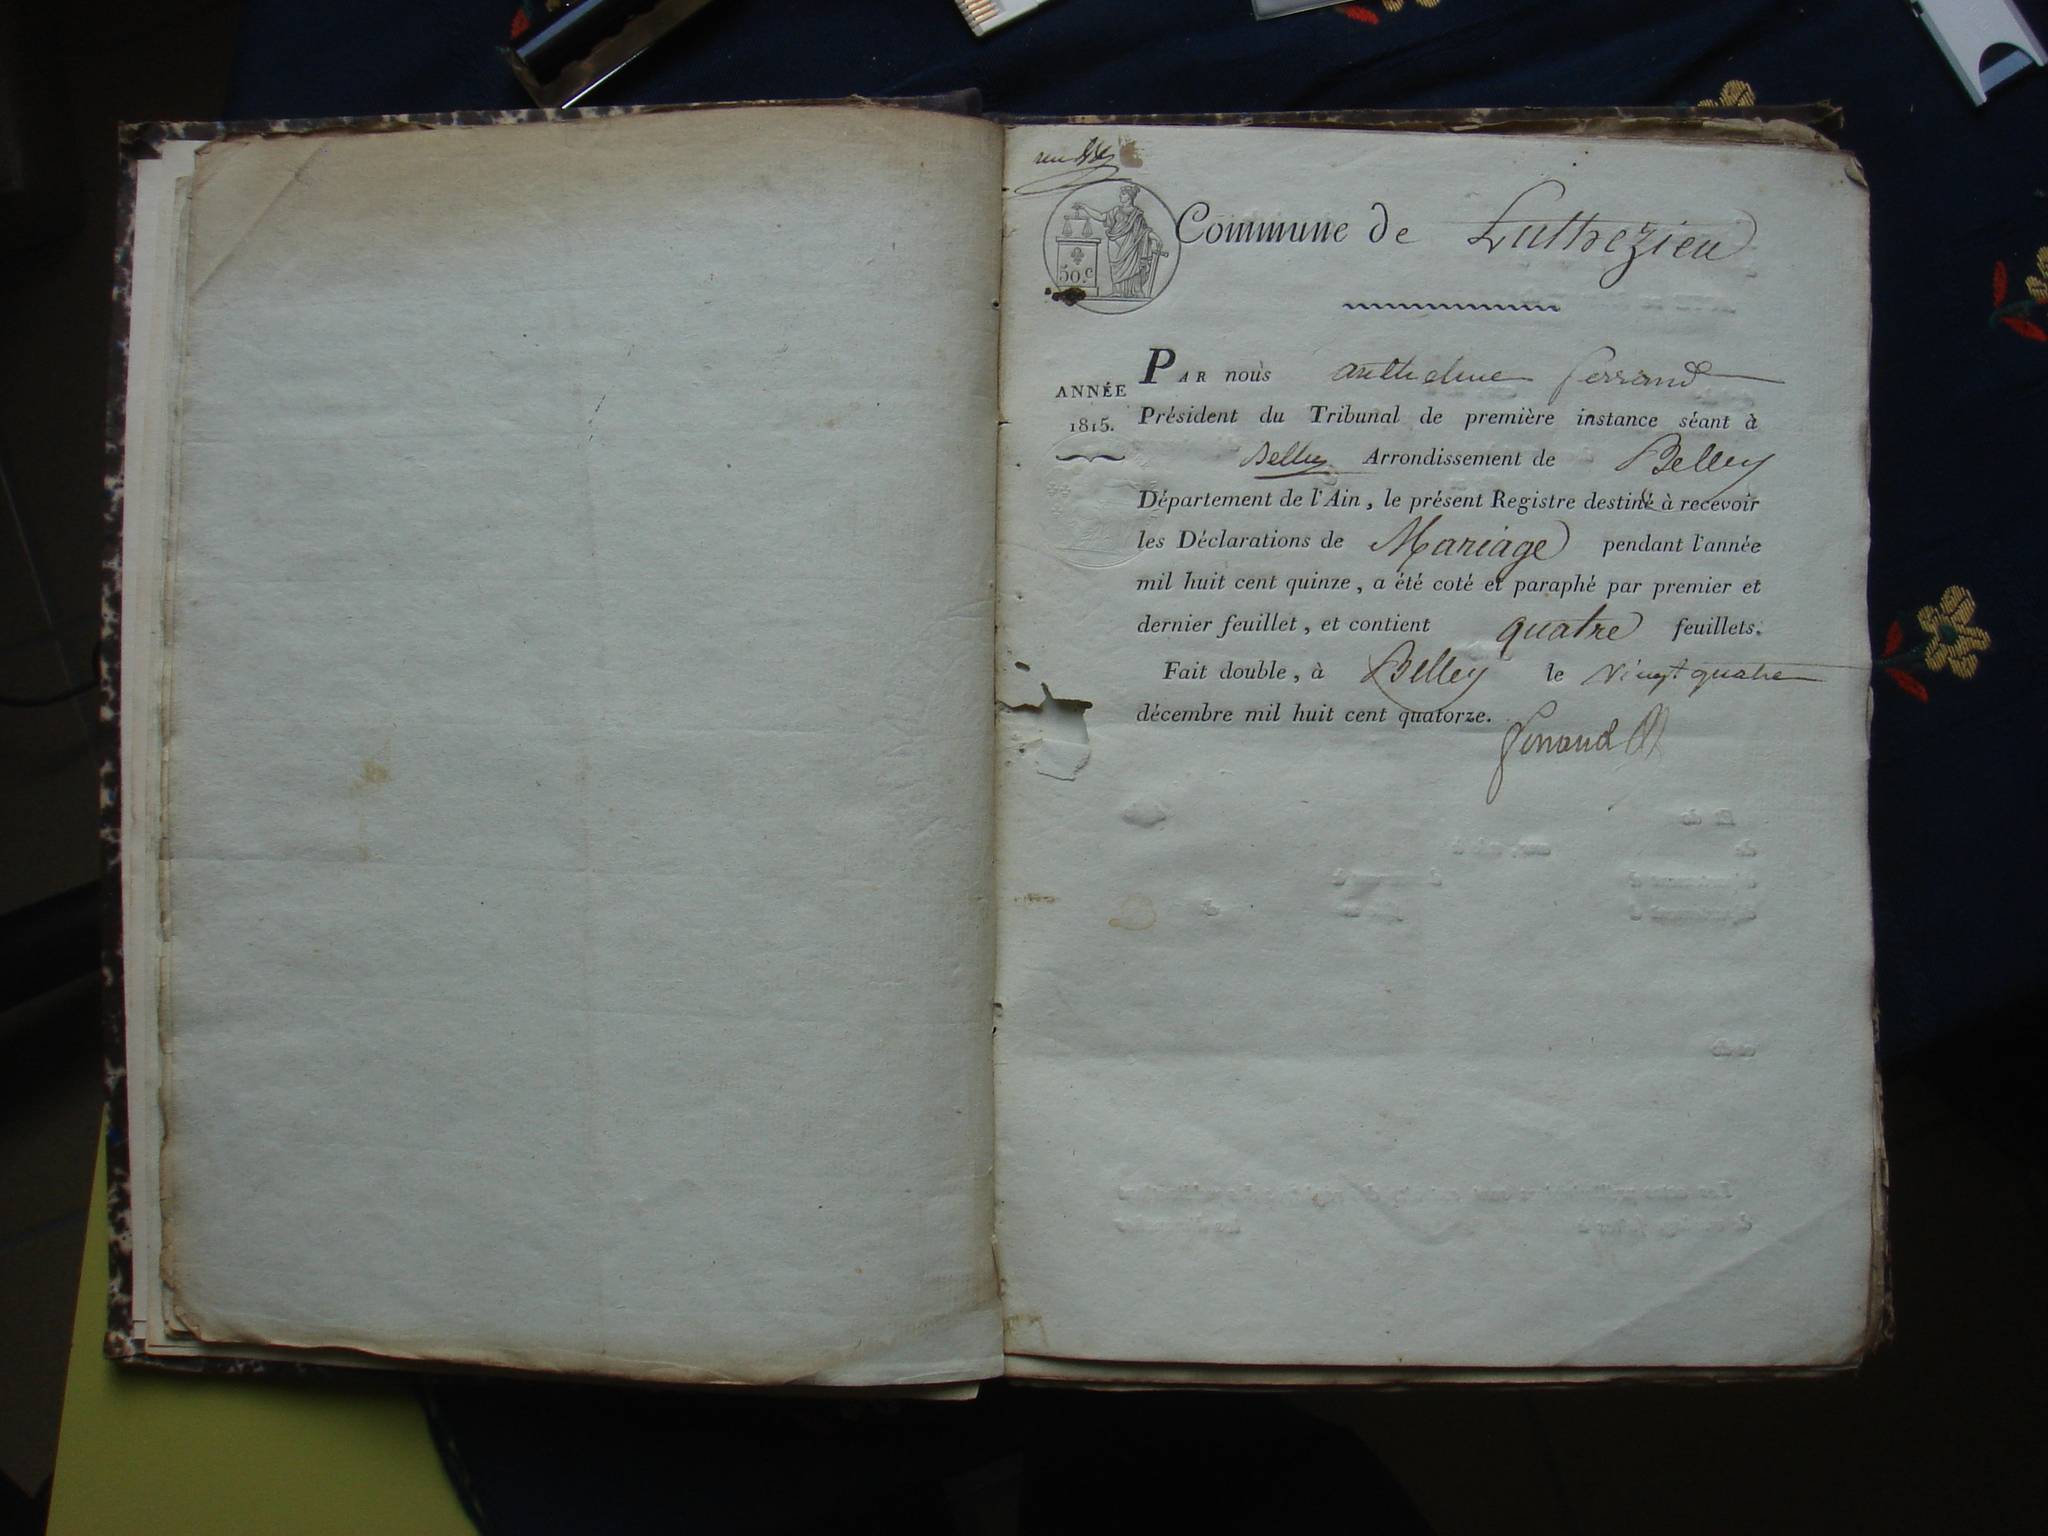 Commune de Luthezieu
50.c
ANNÉE
1815.
PAR nous anthelme ferrand
Président du Tribunal de première instance séant à
Belley Arrondissement de Belley
Département de l'Ain, le présent Registre destiné à recevoir
les Déclarations de Mariage pendant l'année
mil huit cent quinze, a été coté et paraphé par premier et
dernier feuillet, et contient quatre feuillets.
Fait double, à Belley le vingt quatre
décembre mil huit cent quatorze.
ferrand